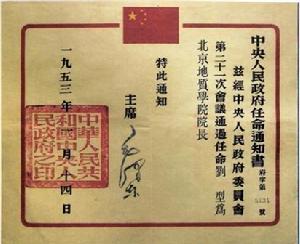 中央人民政府任命通知書 府字第 號
茲經中央人民政府委員會
第二十一次會議通過任命劉 型為
北京地質學院院長
特此通知
主席 毛澤東
一九五三年 月十四日
中華人民共
和國中央人
民政府之印